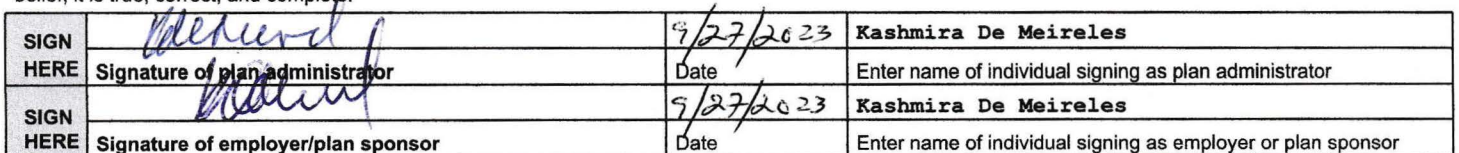 belief, it is true, correct, and complete.
SIGN HERE
9/27/2023 Kashmira De Meireles
Signature of plan administrator Date Enter name of individual signing as plan administrator
SIGN HERE
9/27/2023 Kashmira De Meireles
Signature of employer/plan sponsor Date Enter name of individual signing as employer or plan sponsor